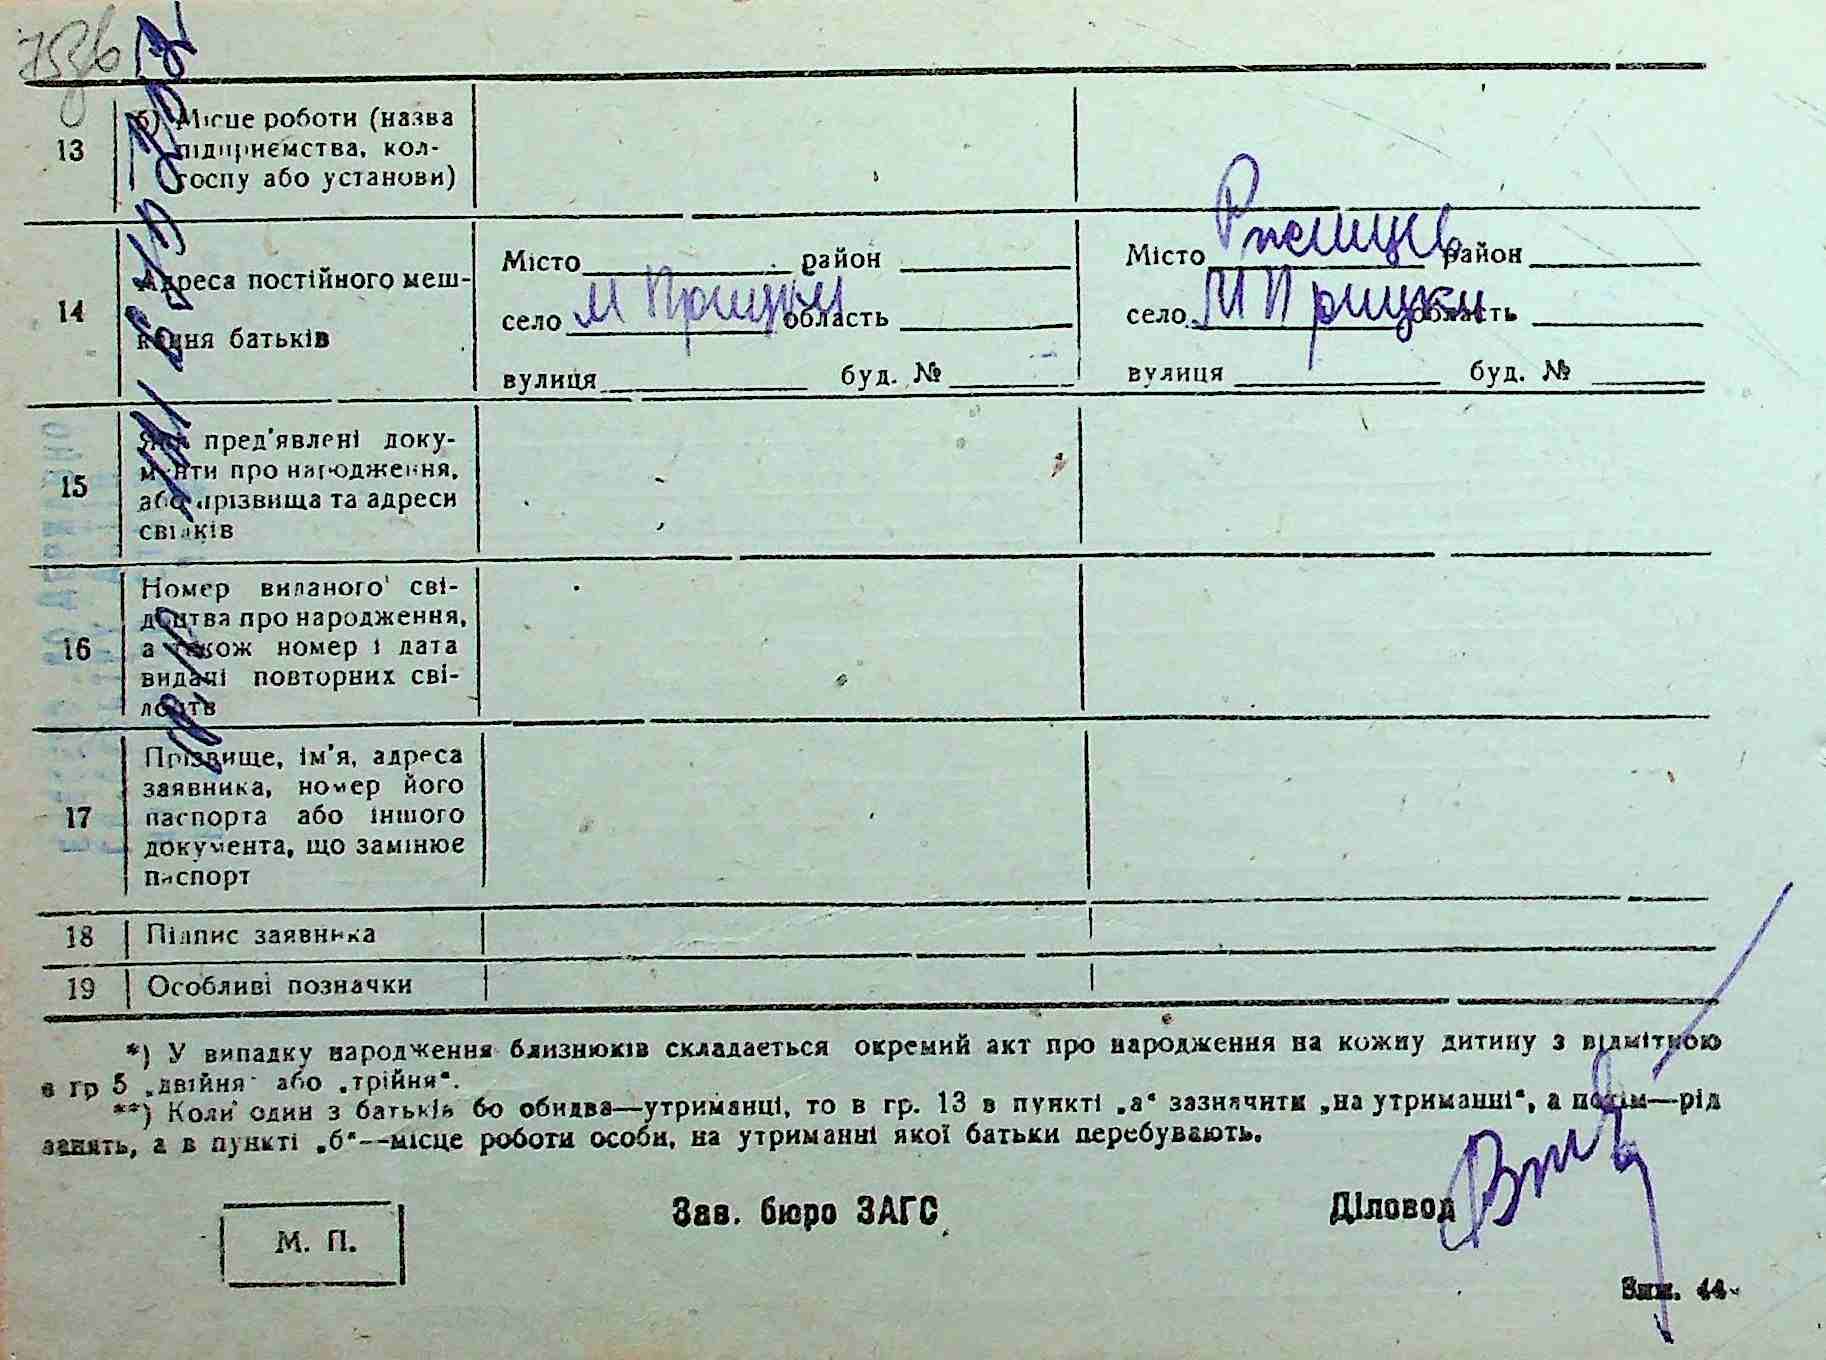 13
б) Місце роботи (назва
підприємства, кол-
госпу або установи)
14
Адреса постійного меш-
кання батьків
Місто район
село М Прицьки область
вулиця буд. №
Місто Ржищев район
село М Прицьки область
вулиця буд. №
15
Які пред'явлені доку-
менти про народження,
або прізвища та адреси
свідків
16
Номер виданого сві-
доцтва про народження,
а також номер і дата
видачі повторних сві-
доцтв
17
Прізвище, ім'я, адреса
заявника, номер його
паспорта або іншого
документа, що замінює
паспорт
18 Підпис заявника
19 Особливі позначки
*) У випадку народження близнюків складається окремий акт про народження на кожну дитину з відміткою
в гр 5 „двійня" або „трійня".
**) Коли один з батьків бо обидва—утриманці, то в гр. 13 в пункті „а" зазначити „на утриманні", а потім—рід
занять, а в пункті „б"—місце роботи особи, на утриманні якої батьки перебувають.
М. П.
Зав. бюро ЗАГС
Діловод
Зам. 44